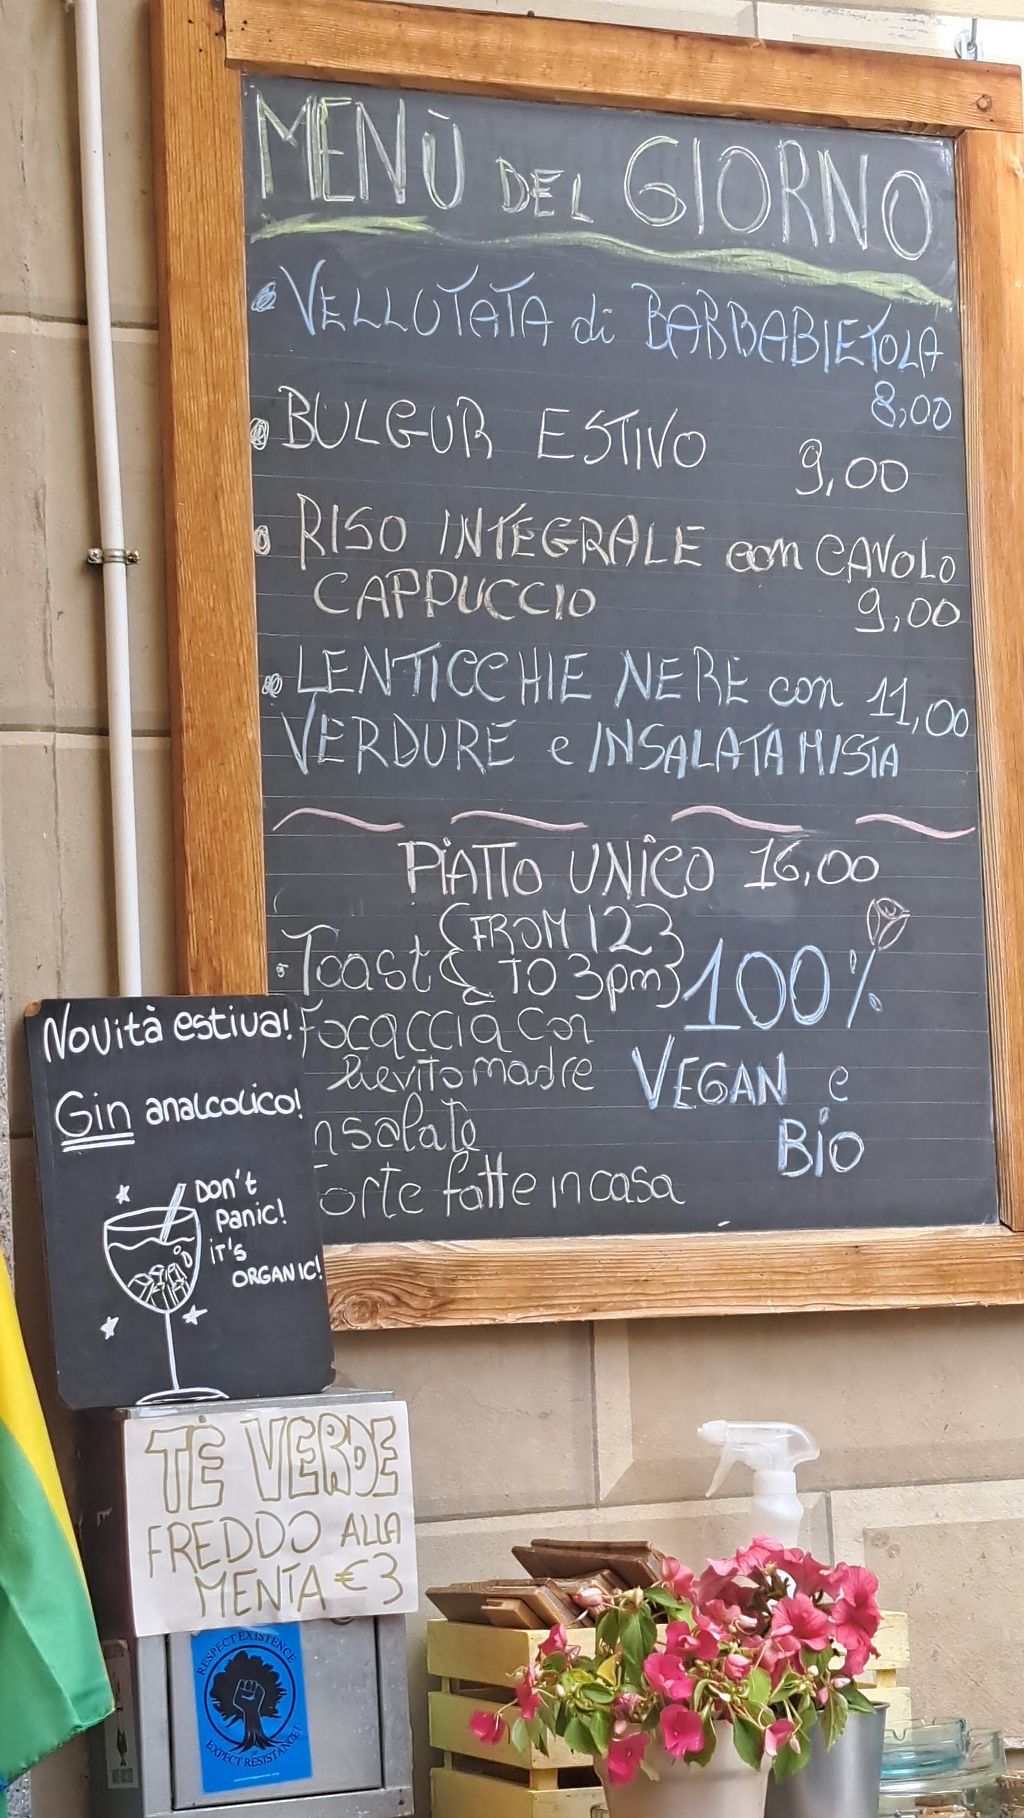 MENÙ DEL GIORNO
• VELLUTATA di BARBABIETOLA
8,00
• BULGUR ESTIVO 9,00
• RISO INTEGRALE con CAVOLO
CAPPUCCIO 9,00
• LENTICCHIE NERE con 11,00
VERDURE e INSALATA MISTA
PIATTO UNICO 16,00
{FROM 12}
• Toast { TO 3pm}
100%
VEGAN e
BIO
focaccia con
lievito madre
nsalate
orte fatte in casa
Novità estiva!
Gin analcolico!
DON'T
PANIC!
iT'S
ORGANIC!
TÈ VERDE
FREDDO ALLA
MENTA €3
RESPECT EXISTENCE
OR
EXPECT RESISTANCE!